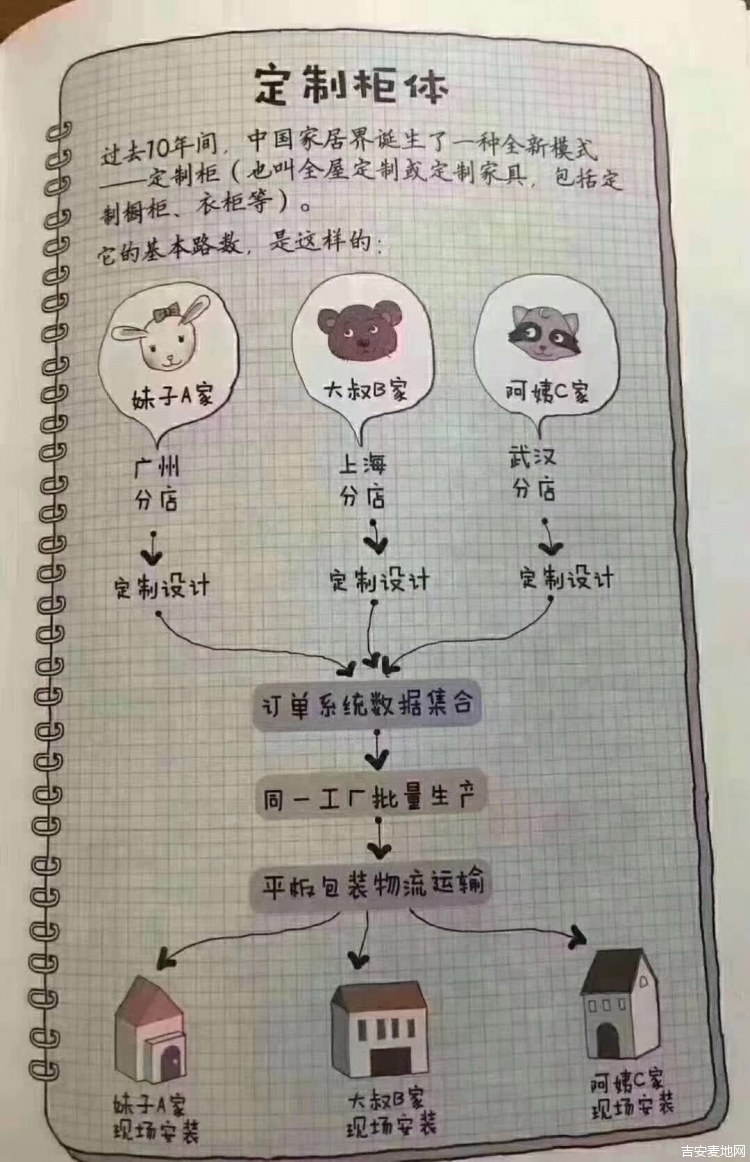 定制柜体
过去10年间，中国家居界诞生了一种全新模式
——定制柜（也叫全屋定制或定制家具，包括定
制橱柜、衣柜等）。
它的基本路数，是这样的：
妹子A家
大叔B家
阿姨C家
广州
分店
上海
分店
武汉
分店
定制设计
定制设计
定制设计
订单系统数据集合
同一工厂批量生产
平板包装物流运输
妹子A家
现场安装
大叔B家
现场安装
阿姨C家
现场安装
吉安麦地网